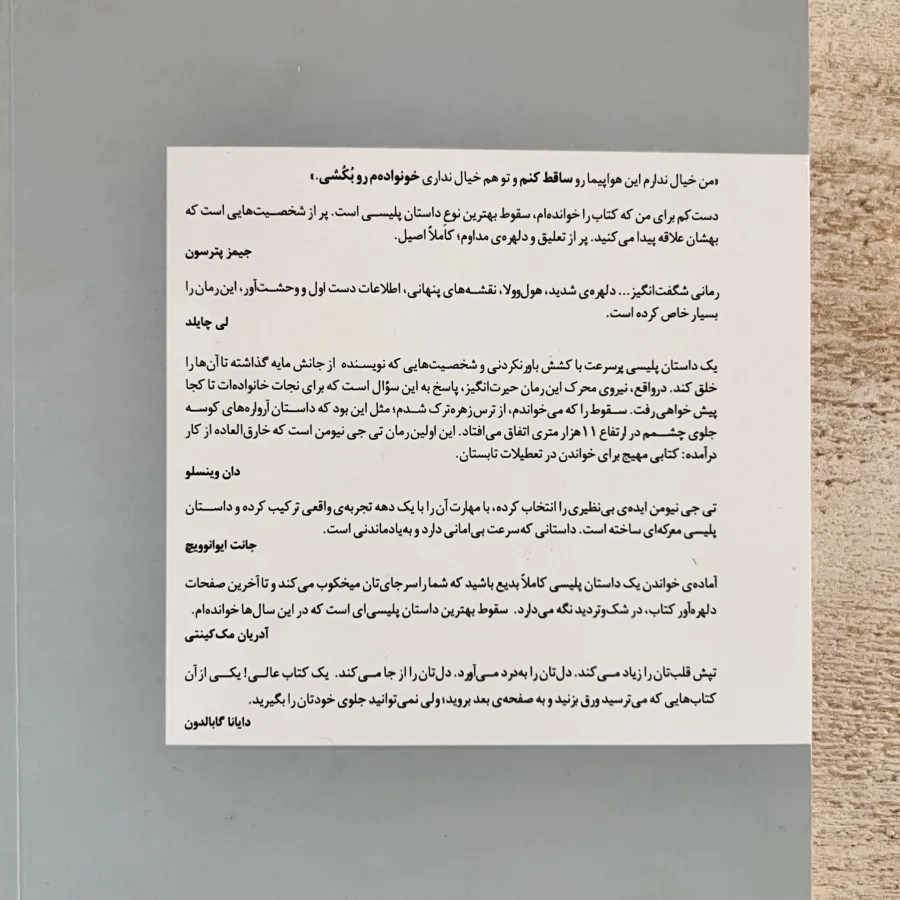 «من خیال ندارم این هواپیما رو ساقط کنم و تو هم خیال نداری خونواده‌م رو بُکُشی.»
دست‌کم برای من که کتاب را خوانده‌ام، سقوط بهترین نوع داستان پلیسی است. پر از شخصیت‌هایی است که
بهشان علاقه پیدا می‌کنید. پر از تعلیق و دلهره‌ی مداوم؛ کاملاً اصیل.
جیمز پترسون
رمانی شگفت‌انگیز... دلهره‌ی شدید، هول‌وولا، نقشه‌های پنهانی، اطلاعات دست اول و وحشت‌آور، این رمان را
بسیار خاص کرده است.
لی چایلد
یک داستان پلیسی پرسرعت با کشش باورنکردنی و شخصیت‌هایی که نویسنده از جانش مایه گذاشته تا آن‌ها را
خلق کند. درواقع، نیروی محرک این رمان حیرت‌انگیز، پاسخ به این سؤال است که برای نجات خانواده‌ات تا کجا
پیش خواهی رفت. سقوط را که می‌خواندم، از ترس زهره‌ترک شدم؛ مثل این بود که داستان آرواره‌های کوسه
جلوی چشمم در ارتفاع ۱۱هزار متری اتفاق می‌افتاد. این اولین رمان تی جی نیومن است که خارق‌العاده از کار
درآمده: کتابی مهیج برای خواندن در تعطیلات تابستان.
دان وینسلو
تی جی نیومن ایده‌ی بی‌نظیری را انتخاب کرده، با مهارت آن را با یک دهه تجربه‌ی واقعی ترکیب کرده و داستان
پلیسی معرکه‌ای ساخته است. داستانی که سرعت بی‌امانی دارد و به‌یادماندنی است.
جانت ایوانوویچ
آماده‌ی خواندن یک داستان پلیسی کاملاً بدیع باشید که شما را سر جای‌تان میخکوب می‌کند و تا آخرین صفحات
دلهره‌آور کتاب، در شک‌وتردید نگه می‌دارد. سقوط بهترین داستان پلیسی‌ای است که در این سال‌ها خوانده‌ام.
آدریان مک‌کینتی
تپش قلب‌تان را زیاد می‌کند. دل‌تان را به‌درد می‌آورد. دل‌تان را از جا می‌کند. یک کتاب عالی! یکی از آن
کتاب‌هایی که می‌ترسید ورق بزنید و به صفحه‌ی بعد بروید؛ ولی نمی‌توانید جلوی خودتان را بگیرید.
دایانا گابالدون